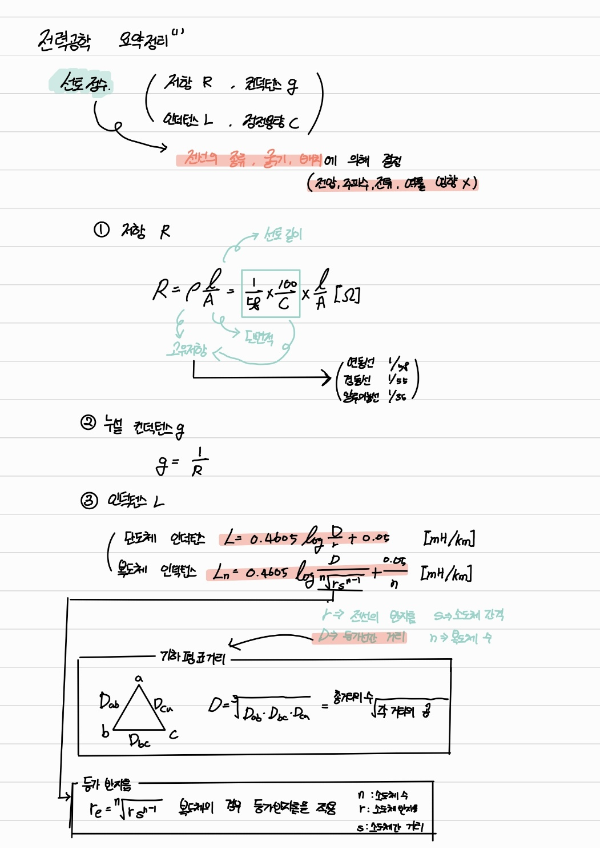 전력공학 요약정리(1)
선로정수. ( 저항 R , 컨덕턴스 g
인덕턴스 L , 정전용량 C )
전선의 종류, 굵기, 배치에 의해 결정
(전압, 주파수, 전류, 역률 영향 X)
① 저항 R
→ 선로 길이
R = ρ l/A = 1/58 × 100/C × l/A [Ω]
→ 단면적
고유저항
( 연동선 1/58
경동선 1/55
알루미늄선 1/35 )
② 누설 컨덕턴스 g
g = 1/R
③ 인덕턴스 L
단도체 인덕턴스 L = 0.4605 log D/r + 0.05 [mH/km]
복도체 인덕턴스 Ln = 0.4605 log D/ⁿ√(r sⁿ⁻¹) + 0.05/n [mH/km]
r → 전선의 반지름 s → 소도체 간격
D → 등가선간 거리 n → 복도체 수
기하 평균거리
a
Dab Dca D = ³√(Dab · Dbc · Dca) = 총거리의 수√(각 거리의 곱)
b c
Dbc
등가 반지름
re = ⁿ√(r sⁿ⁻¹) 복도체의 경우 등가반지름을 적용
n : 소도체 수
r : 소도체 반지름
s : 소도체간 거리